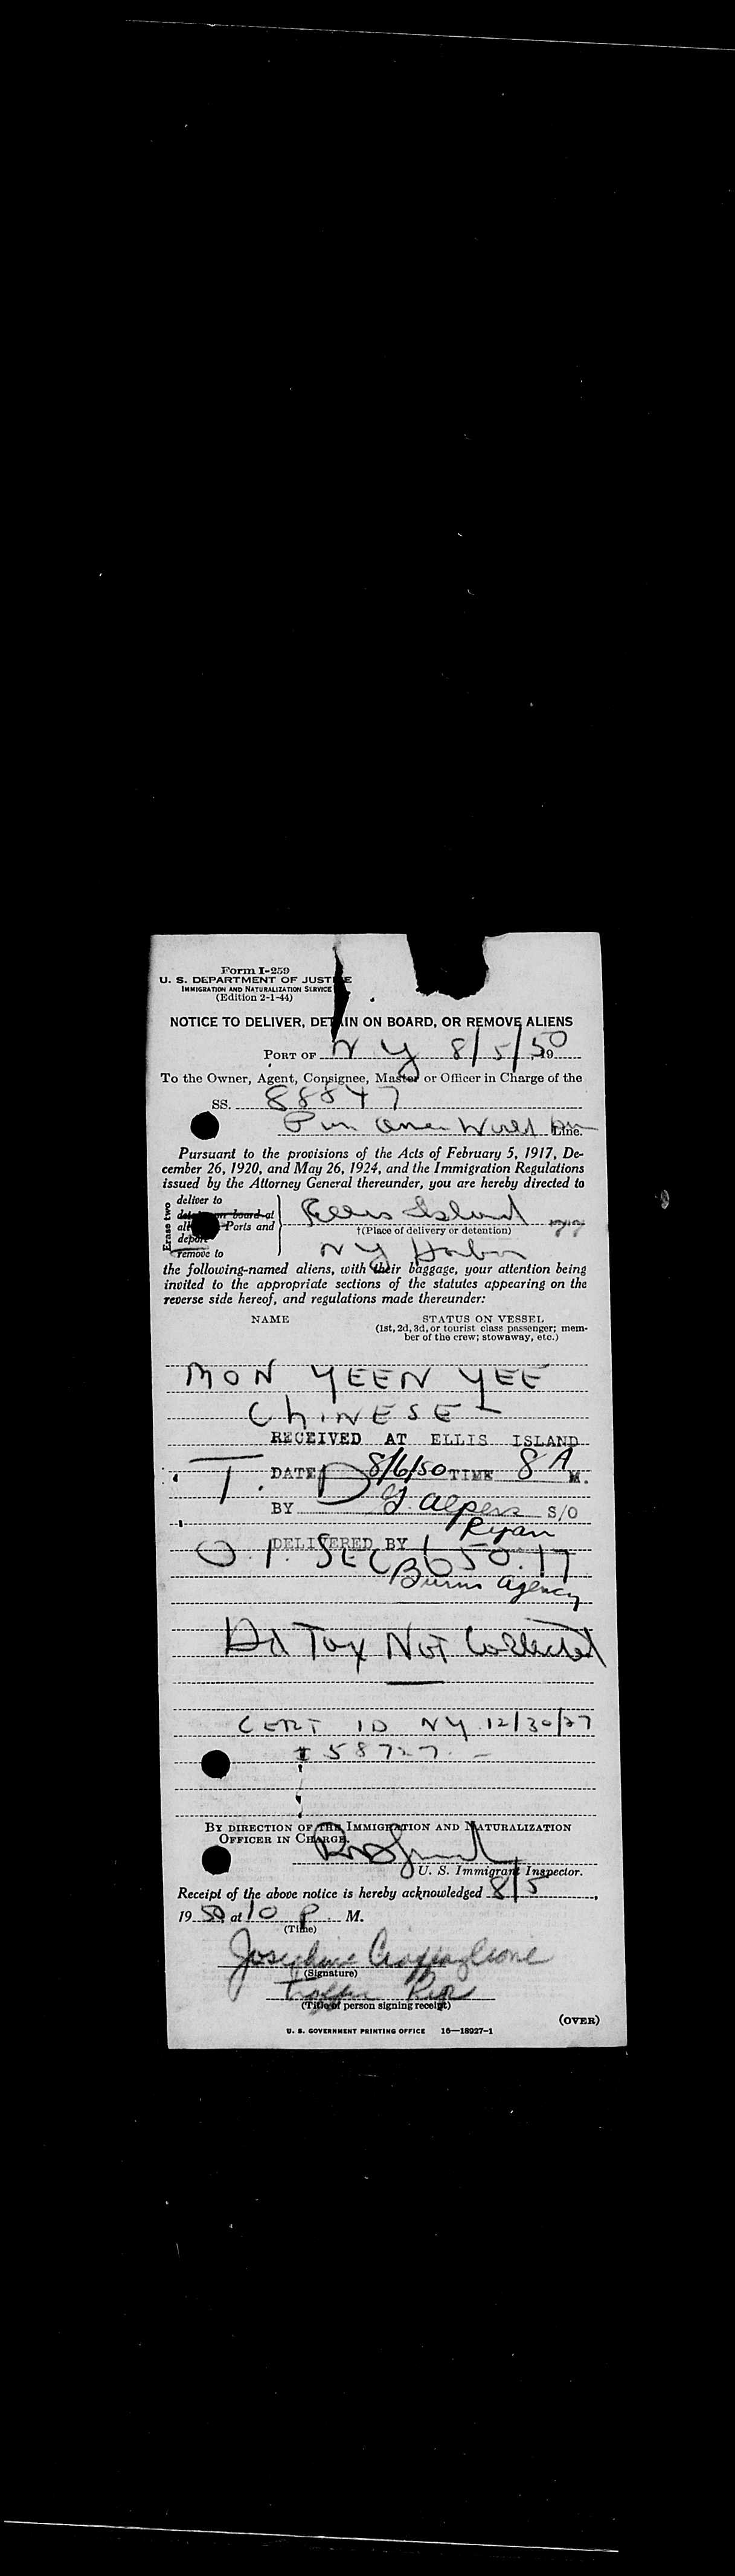 Form I-259
U. S. DEPARTMENT OF JUSTICE
IMMIGRATION AND NATURALIZATION SERVICE
(Edition 2-1-44)
NOTICE TO DELIVER, DETAIN ON BOARD, OR REMOVE ALIENS
PORT OF N Y 8/5/50, 19
To the Owner, Agent, Consignee, Master or Officer in Charge of the
SS. 88847
Pan Amer World Line.
Pursuant to the provisions of the Acts of February 5, 1917, De-
cember 26, 1920, and May 26, 1924, and the Immigration Regulations
issued by the Attorney General thereunder, you are hereby directed to
Erase two
deliver to
detain on board at
all Ports and
deport
remove to
Ellis Island
†(Place of delivery or detention)
N Y Harbor
the following-named aliens, with their baggage, your attention being
invited to the appropriate sections of the statutes appearing on the
reverse side hereof, and regulations made thereunder:
NAME STATUS ON VESSEL
(1st, 2d, 3d, or tourist class passenger; mem-
ber of the crew; stowaway, etc.)
MON YEEN YEE
CHINESE
RECEIVED AT ELLIS ISLAND
T. D
DATE 8/6/50 TIME 8 A M.
BY J. Alpers S/O
Ryan
DELIVERED BY
O.I. SEC 650.17
Burns Agency
Hd Tax Not Collected
CERT ID NY 12/30/27
# 58727
BY DIRECTION OF THE IMMIGRATION AND NATURALIZATION
OFFICER IN CHARGE.
U. S. Immigrant Inspector.
Receipt of the above notice is hereby acknowledged 8/5,
19 50, at 10 P. M.
(Time)
Josephine
(Signature)
Traffic Rep
(Title of person signing receipt)
(OVER)
U. S. GOVERNMENT PRINTING OFFICE 16—18927-1